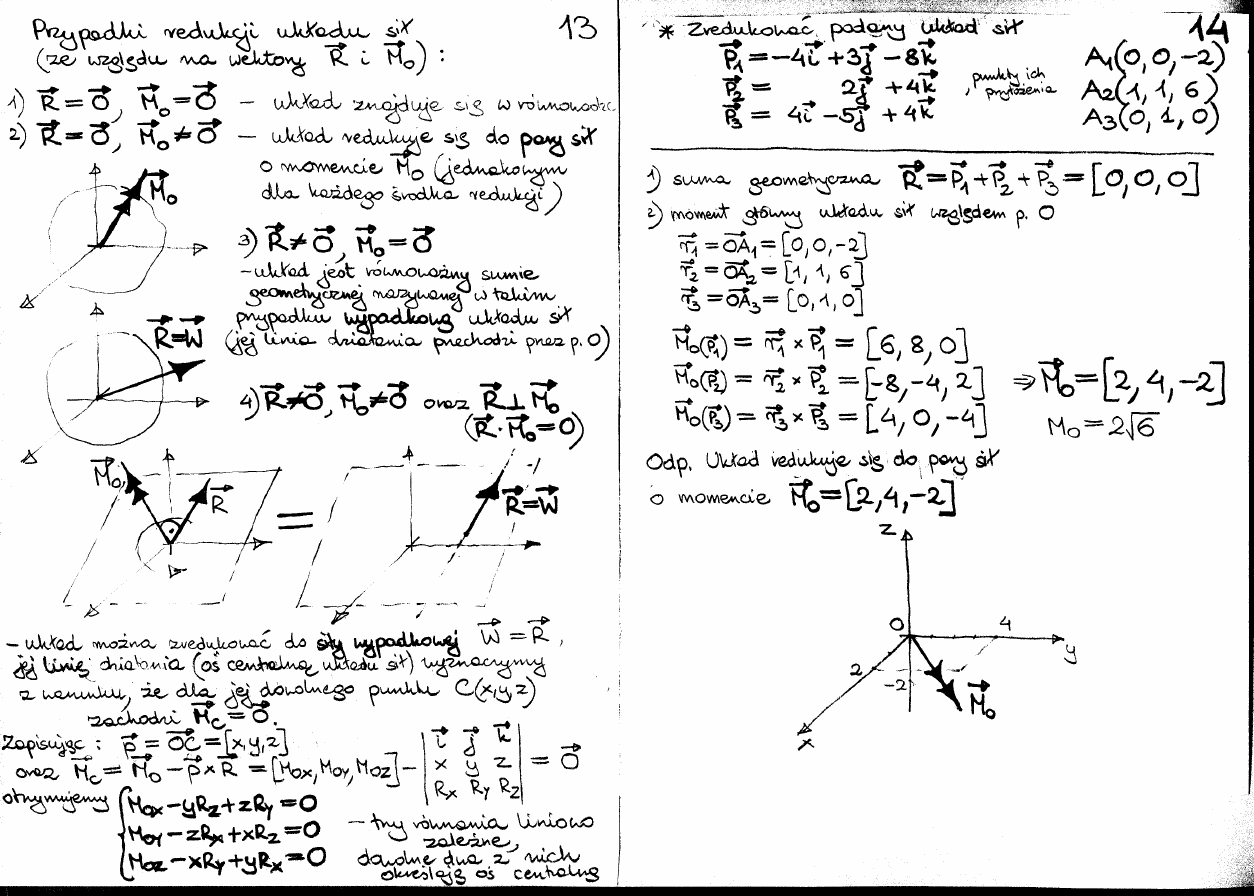 Przypadki redukcji układu sił 13
(ze względu na wektory R⃗ i M⃗₀) :
1) R⃗ = O⃗, M⃗₀ = O⃗ – układ znajduje się w równowadze
2) R⃗ = O⃗, M⃗₀ ≠ O⃗ – układ redukuje się do pary sił
o momencie M⃗₀ (jednakowym
dla każdego środka redukcji)
M⃗₀
3) R⃗ ≠ O⃗, M⃗₀ = O⃗
– układ jest równoważny sumie
geometrycznej nazywanej w takim
przypadku wypadkową układu sił
(jej linia działania przechodzi przez p. O)
R⃗=W⃗
4) R⃗≠O⃗, M⃗₀≠O⃗ oraz R⃗⊥M⃗₀
(R⃗·M⃗₀=0)
M⃗₀ R⃗ = R⃗=W⃗
– układ można zredukować do siły wypadkowej W⃗ = R⃗,
jej linię działania (oś centralną układu sił) wyznaczymy
z warunku, że dla jej dowolnego punktu C(x,y,z)
zachodzi M⃗c = O⃗.
Zapisując : p⃗ = OC⃗ = [x,y,z]
oraz M⃗c = M⃗₀ – p⃗×R⃗ = [M₀x, M₀y, M₀z] – | i⃗ j⃗ k⃗ | = O⃗
| x y z |
| Rx Ry Rz |
otrzymujemy { M₀x – yRz + zRy = 0
M₀y – zRx + xRz = 0
M₀z – xRy + yRx = 0
– trzy równania liniowo
zależne,
dowolne dwa z nich
określają oś centralną
14
* Zredukować podany układ sił
P⃗₁ = –4i⃗ + 3j⃗ – 8k⃗ A₁(0, 0, –2)
P⃗₂ = 2j⃗ + 4k⃗ , punkty ich przyłożenia A₂(1, 1, 6)
P⃗₃ = 4i⃗ – 5j⃗ + 4k⃗ A₃(0, 1, 0)
1) suma geometryczna R⃗ = P⃗₁ + P⃗₂ + P⃗₃ = [0, 0, 0]
2) moment główny układu sił względem p. O
r⃗₁ = OA⃗₁ = [0, 0, –2]
r⃗₂ = OA⃗₂ = [1, 1, 6]
r⃗₃ = OA⃗₃ = [0, 1, 0]
M⃗₀(P⃗₁) = r⃗₁ × P⃗₁ = [6, 8, 0]
M⃗₀(P⃗₂) = r⃗₂ × P⃗₂ = [–8, –4, 2] ⇒ M⃗₀ = [2, 4, –2]
M⃗₀(P⃗₃) = r⃗₃ × P⃗₃ = [4, 0, –4] M₀ = 2√6
Odp. Układ redukuje się do pary sił
o momencie M⃗₀ = [2, 4, –2]
z
O 4
y
2
–2
M⃗₀
x